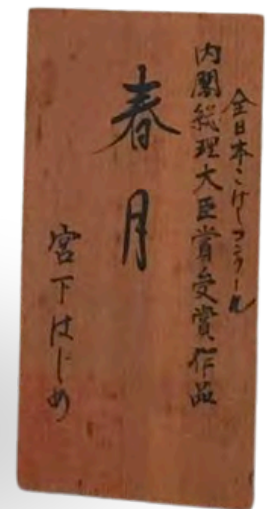 全日本こけしコンクール
内閣総理大臣賞受賞作品
春月
宮下はじめ